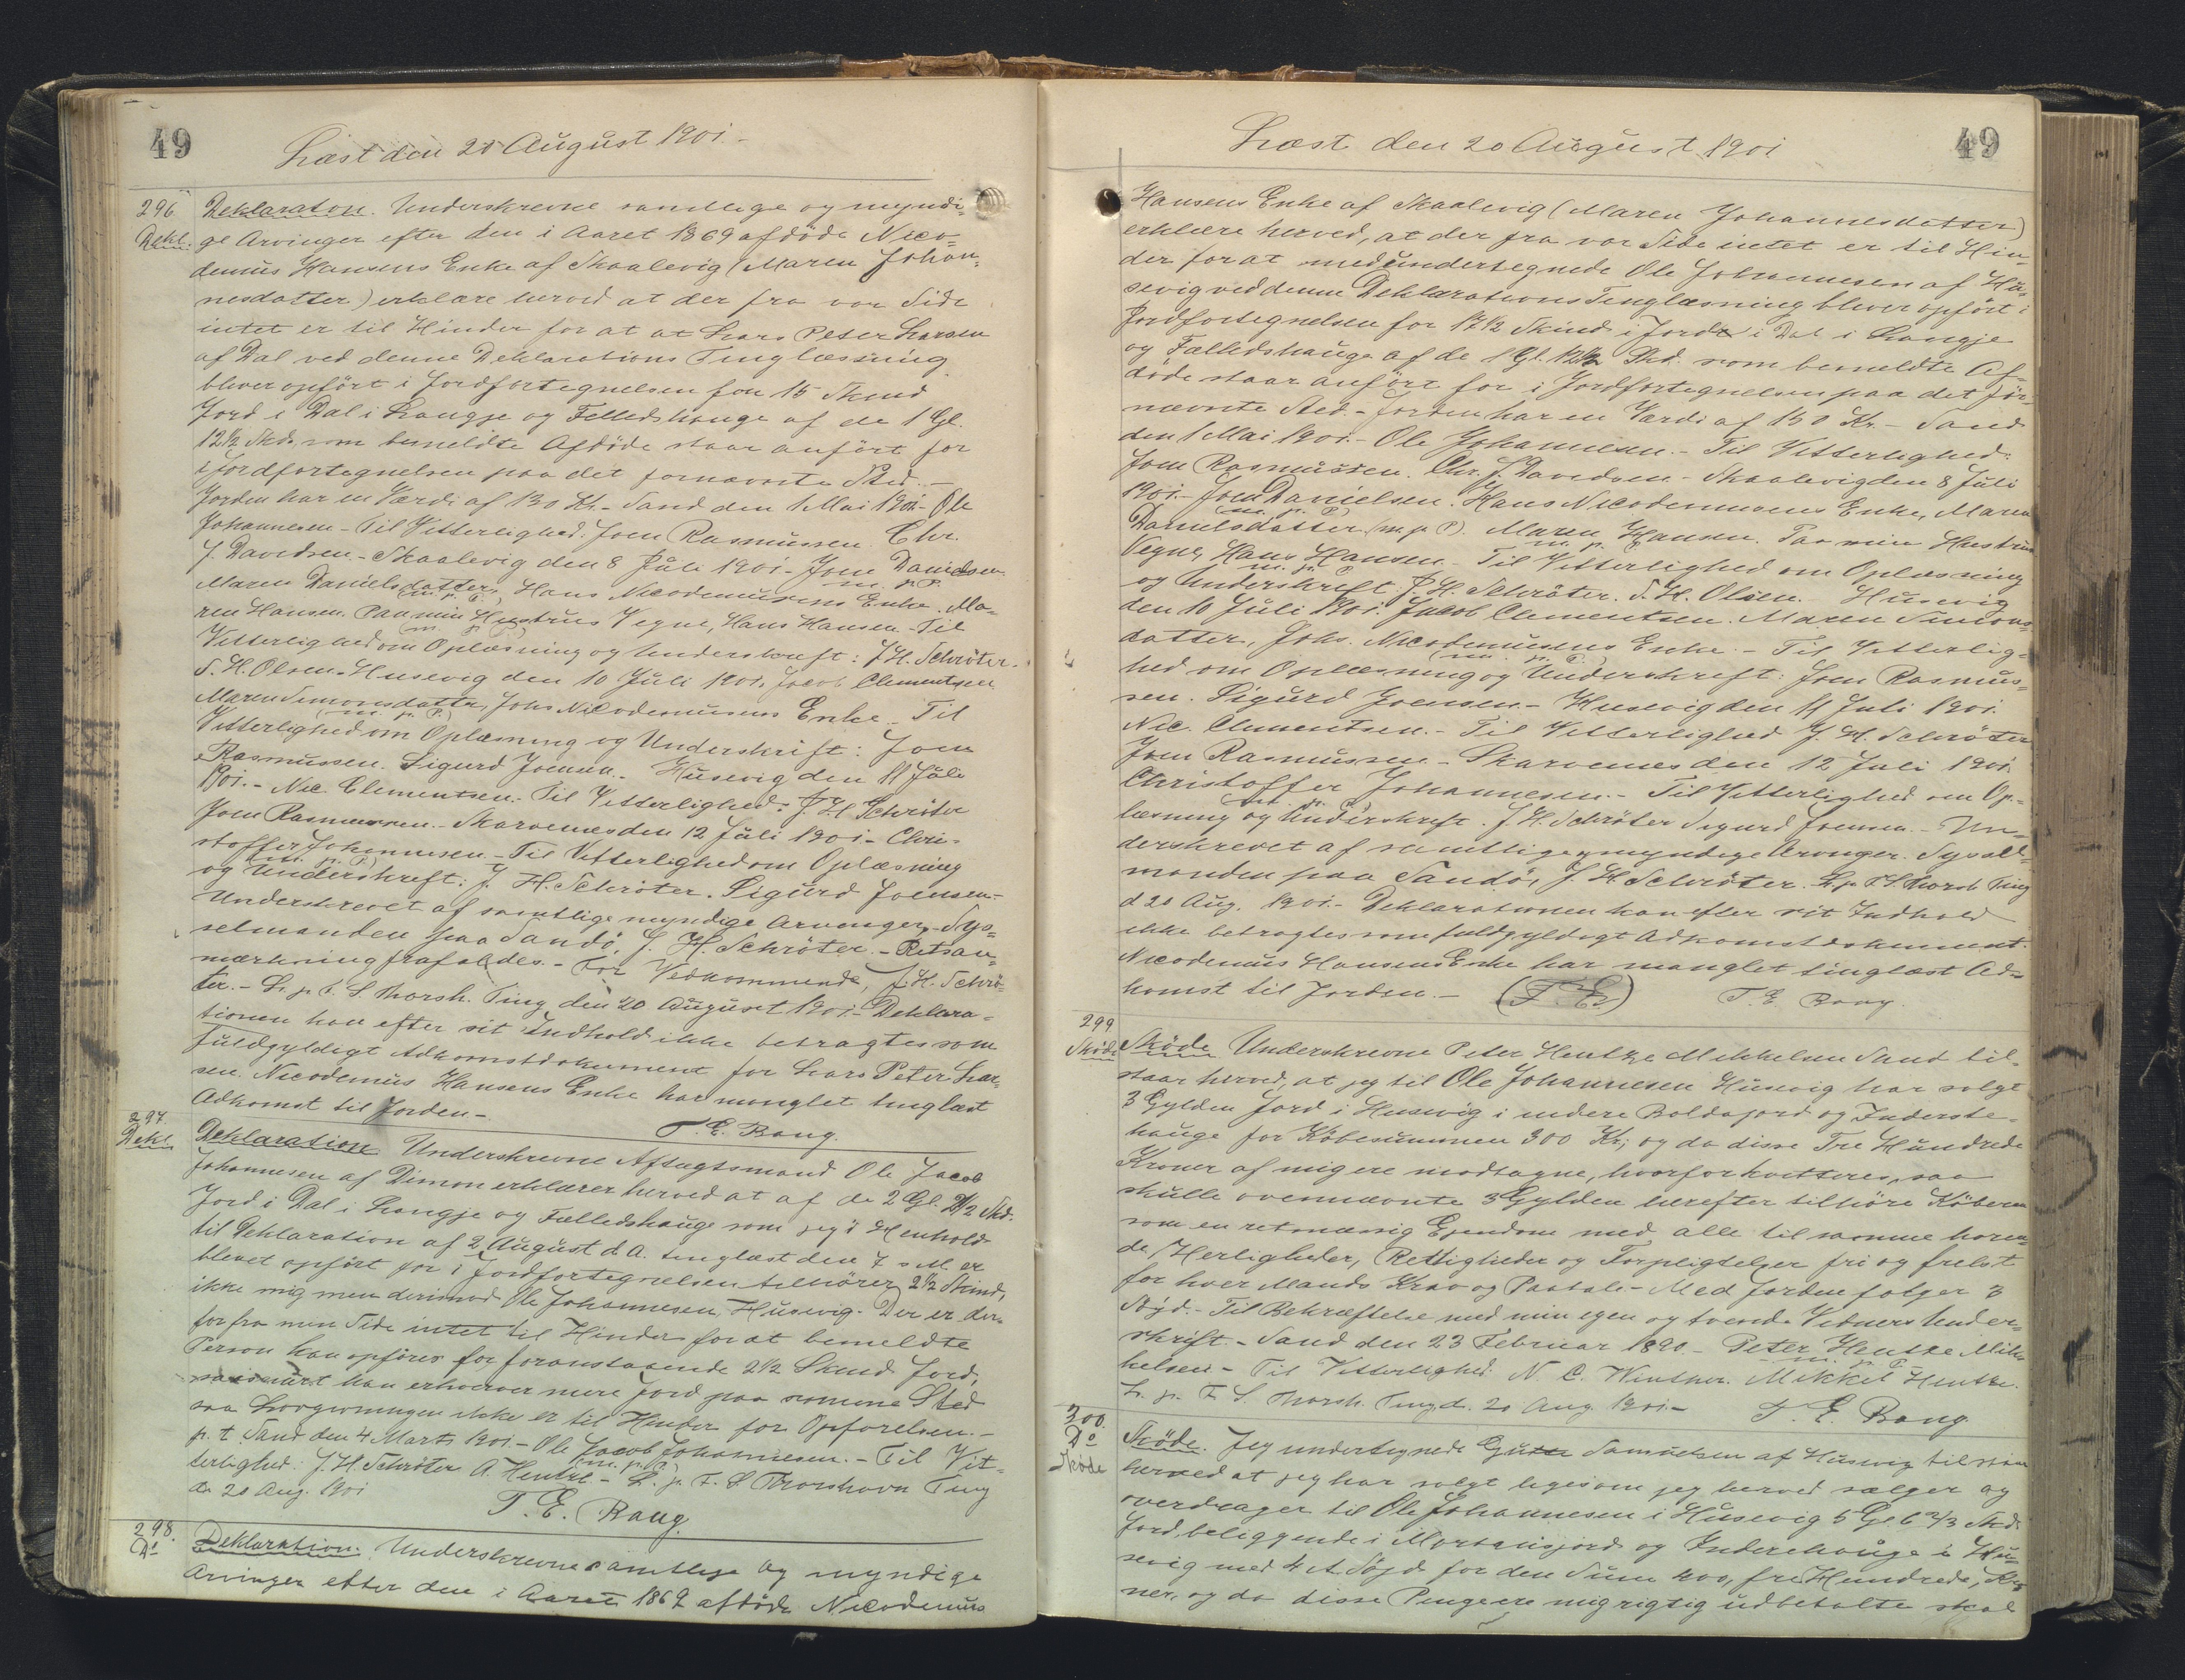 49
Læst den 20 August 1901.-
296 Deklaraton. Underskrevne samtlige og myndi-
Dekl. ge Arvinger efter den i Aaret 1869 afdöde Nico-
demus Hansens Enke af Skaalevig (Maren Johan-
nesdatter) erklære herved at der fra vor Side
intet er til Hinder for at at Lars Peter Larsen
af Dal ved denne Deklarations Tinglæsning
bliver opfört i Jordfortegnelsen for 15 Skind
Jord i Dal i Langje og Felledshauge af de 1 Gl.
12½ Skd. som bemeldte Afdöde staar anfört for
i Jordfortegnelsen paa det fornævnte Sted.-
Jorden har en Værdi af 130 Kr.- Sand den 1 Mai 1901- Ole
Johannesen - Til Vitterlighed: Joen Rasmussen. Chr.
J. Davidsen.- Skaalevig den 8 Juli 1901.- Joen Danielsen
m. p. P.
Maren Danielsdatter, Hans Nicodemusens Enke. Ma-
(m. p. P.)
ren Hansen. Paa min Hustrus Vegne, Hans Hansen - Til
(m. p. P.)
Vitterlighed om Oplæsning og Underskrift: J. H. Schröter.
S. H. Olsen.- Husevig den 10 Juli 1901. Jacob Clementsen
Maren Simonsdatter, Johs Nicodemusens Enke.- Til
(m. p. P.)
Vitterlighed om Oplæsning og Underskrift: Joen
Rasmussen. Sigurd Joensen.- Husevig den 11 Juli
1901.- Nic. Clementsen.- Til Vitterlighed J. H. Schröter
Joen Rasmussen.- Skarvenes den 12 Juli 1901- Chri-
stoffer Johannesen.- Til Vitterlighed om Oplæsning
(m. p. P.)
og Underskrift: J. H. Schröter. Sigurd Joensen.-
Underskrevet af samtlige myndige Arvinger. Sys-
selmanden paa Sandö, J. H. Schröter.- Retsan-
mærkning frafaldes.- For Vedkommende, J. H. Schrö-
ter.- L. p. F. S. Thorsh. Ting den 20 August 1901.- Deklara-
tionen kan efter sit Indhold ikke betragtes som
fuldgyldigt Adkomstdokument for Lars Peter Lar-
sen. Nicodemus Hansens Enke har manglet tinglæst
Adkomst til Jorden-
T. E. Bang.
297.
Dekl. Deklaration Underskrevne Aftægtsmand Ole Jacob
Johannesen af Dimon erklærer herved at af de 2 Gl. 2½ Skd.
Jord i Dal i Langje og Fælledshauge som jeg i Henhold
til Deklaration af 2 August d. A. tinglæst den 7 s. M. er
blevet opfört for i Jordfortegnelsen tilhörer 2½ Skind,
ikke mig men derimod Ole Johannesen, Husevig. Der er der-
for fra min Side intet til Hinder for at bemeldte
Person kan opföres for foranstaaende 2½ Skind Jord,
saasnart han erhverver mere Jord paa samme Sted
saa Lovgivningen ikke er til Hinder for Opförelsen.-
p. t. Sand den 4 Marts 1901.- Ole Jacob Johannesen.- Til Vit-
(m. p. P.)
terlighed: J. H. Schröter A. Hentze.- L. p. F. S Thorshavn Ting
d. 20 Aug. 1901
T. E. Bang.
298.
Do Deklaration. Underskrevne samtlige og myndige
Arvinger efter den i Aaret 1869 afdöde Nicodemus
Læst den 20 August 1901
49
Hansens Enke af Skaalevig (Maren Johannesdatter)
erklære herved, at der fra vor Side intet er til Hin-
der for at medundertegnede Ole Johannesen af Hu-
sevig ved denne Deklarations Tinglæsning bliver opfört i
Jordfortegnelsen for 17½ Skind i Jord i Dal i Langje
og Fælledshauge af de 1 Gl. 12½ Skd. som bemeldte Af-
döde staar anfört for i Jordfortegnelsen paa det för-
nævnte Sted.- Jorden har en Værdi af 150 Kr.- Sand
den 1 Mai 1901.- Ole Johannesen.- Til Vitterlighed:
Joen Rasmussen. Chr. J. Davidsen - Skaalevig den 8 Juli
1901.- Joen Danielsen. Hans Nicodemusens Enke, Maren
(m. p. P.)
Danielsdatter (m. p. P). Maren Hansen. Paa min Hustrus
m. p. P
Vegne, Hans Hansen.- Til Vitterlighed om Oplæsning
m. p. P.
og Underskrift. J. H. Schröter. S. H. Olsen.- Husevig
den 10 Juli 1901. Jacob Clementsen. Maren Simons-
datter, Johs. Nicodemusens Enke.- Til Vitterlig-
(m. p. P.)
hed om Oplæsning og Underskrift: Joen Rasmus-
sen. Sigurd Joensen.- Husevig den 11 Juli 1901.
Nic. Clementsen.- Til Vitterlighed J. H. Schröter
Joen Rasmussen.- Skarvenes den 12 Juli 1901.
Christoffer Johannesen.- Til Vitterlighed om Op-
(m. p. P.)
læsning og Underskrift. J. H. Schröter Sigurd Joensen.- Un-
derskrevet af samtlige myndige Arvinger. Syssel-
manden paa Sandö, J. H. Schröter. L. p. F. S. Thorsh Ting
d 20 Aug. 1901.- Deklarationen kan efter sit Indhold
ikke betragtes som fuldgyldigt Adkomstdokument.
Nicodemus Hansens Enke har manglet tinglæst Ad-
komst til Jorden.- T. E. Bang.
299
Sköde Sköde Underskrevne Peter Hentze Mikkelsen Sand til-
staar herved, at jeg til Ole Johannesen Husevig har solgt
3 Gylden Jord i Husevig i nedere Boldajord og Inderste-
hauge for Köbesummen 300 Kr; og da disse Tre Hundrede
Kroner af mig ere modtagne, hvorfor kvitteres, saa
skulle ovennævnte 3 Gylden herefter tilhöre Köberen
som en retmæssig Ejendom med alle til samme høren-
de Herligheder, Rettigheder og Forpligtelser fri og frelst
for hver Mands Krav og Paatale.- Med Jorden følger 3
Söjd.- Til Bekræftelse med min egen og tvende Vidners Under-
skrift.- Sand den 23 Februar 1890.- Peter Hentze Mik-
m. p. P.
kelsen - Til Vitterlighed: N. C. Winther. Mikkel Hentze.
L. p. F. S. Thorsh. Ting d. 20 Aug. 1901.- T. E. Bang
300
Do
Sköde Sköde. Jeg undertegnede Gutte Samuelsen af Husevig tilstaar
herved at jeg har solgt ligesom jeg herved sælger og
overdrager til Ole Johannesen i Husevig 5 Gl 6 2/3 Skd.
Jord, beliggende i Mortansjord og Inderehauge i Hu-
sevig med 4 A Söjd for den Sum 400, fire Hundrede, Kro
ner, og da disse Penge ere mig rigtig udbetalte skal